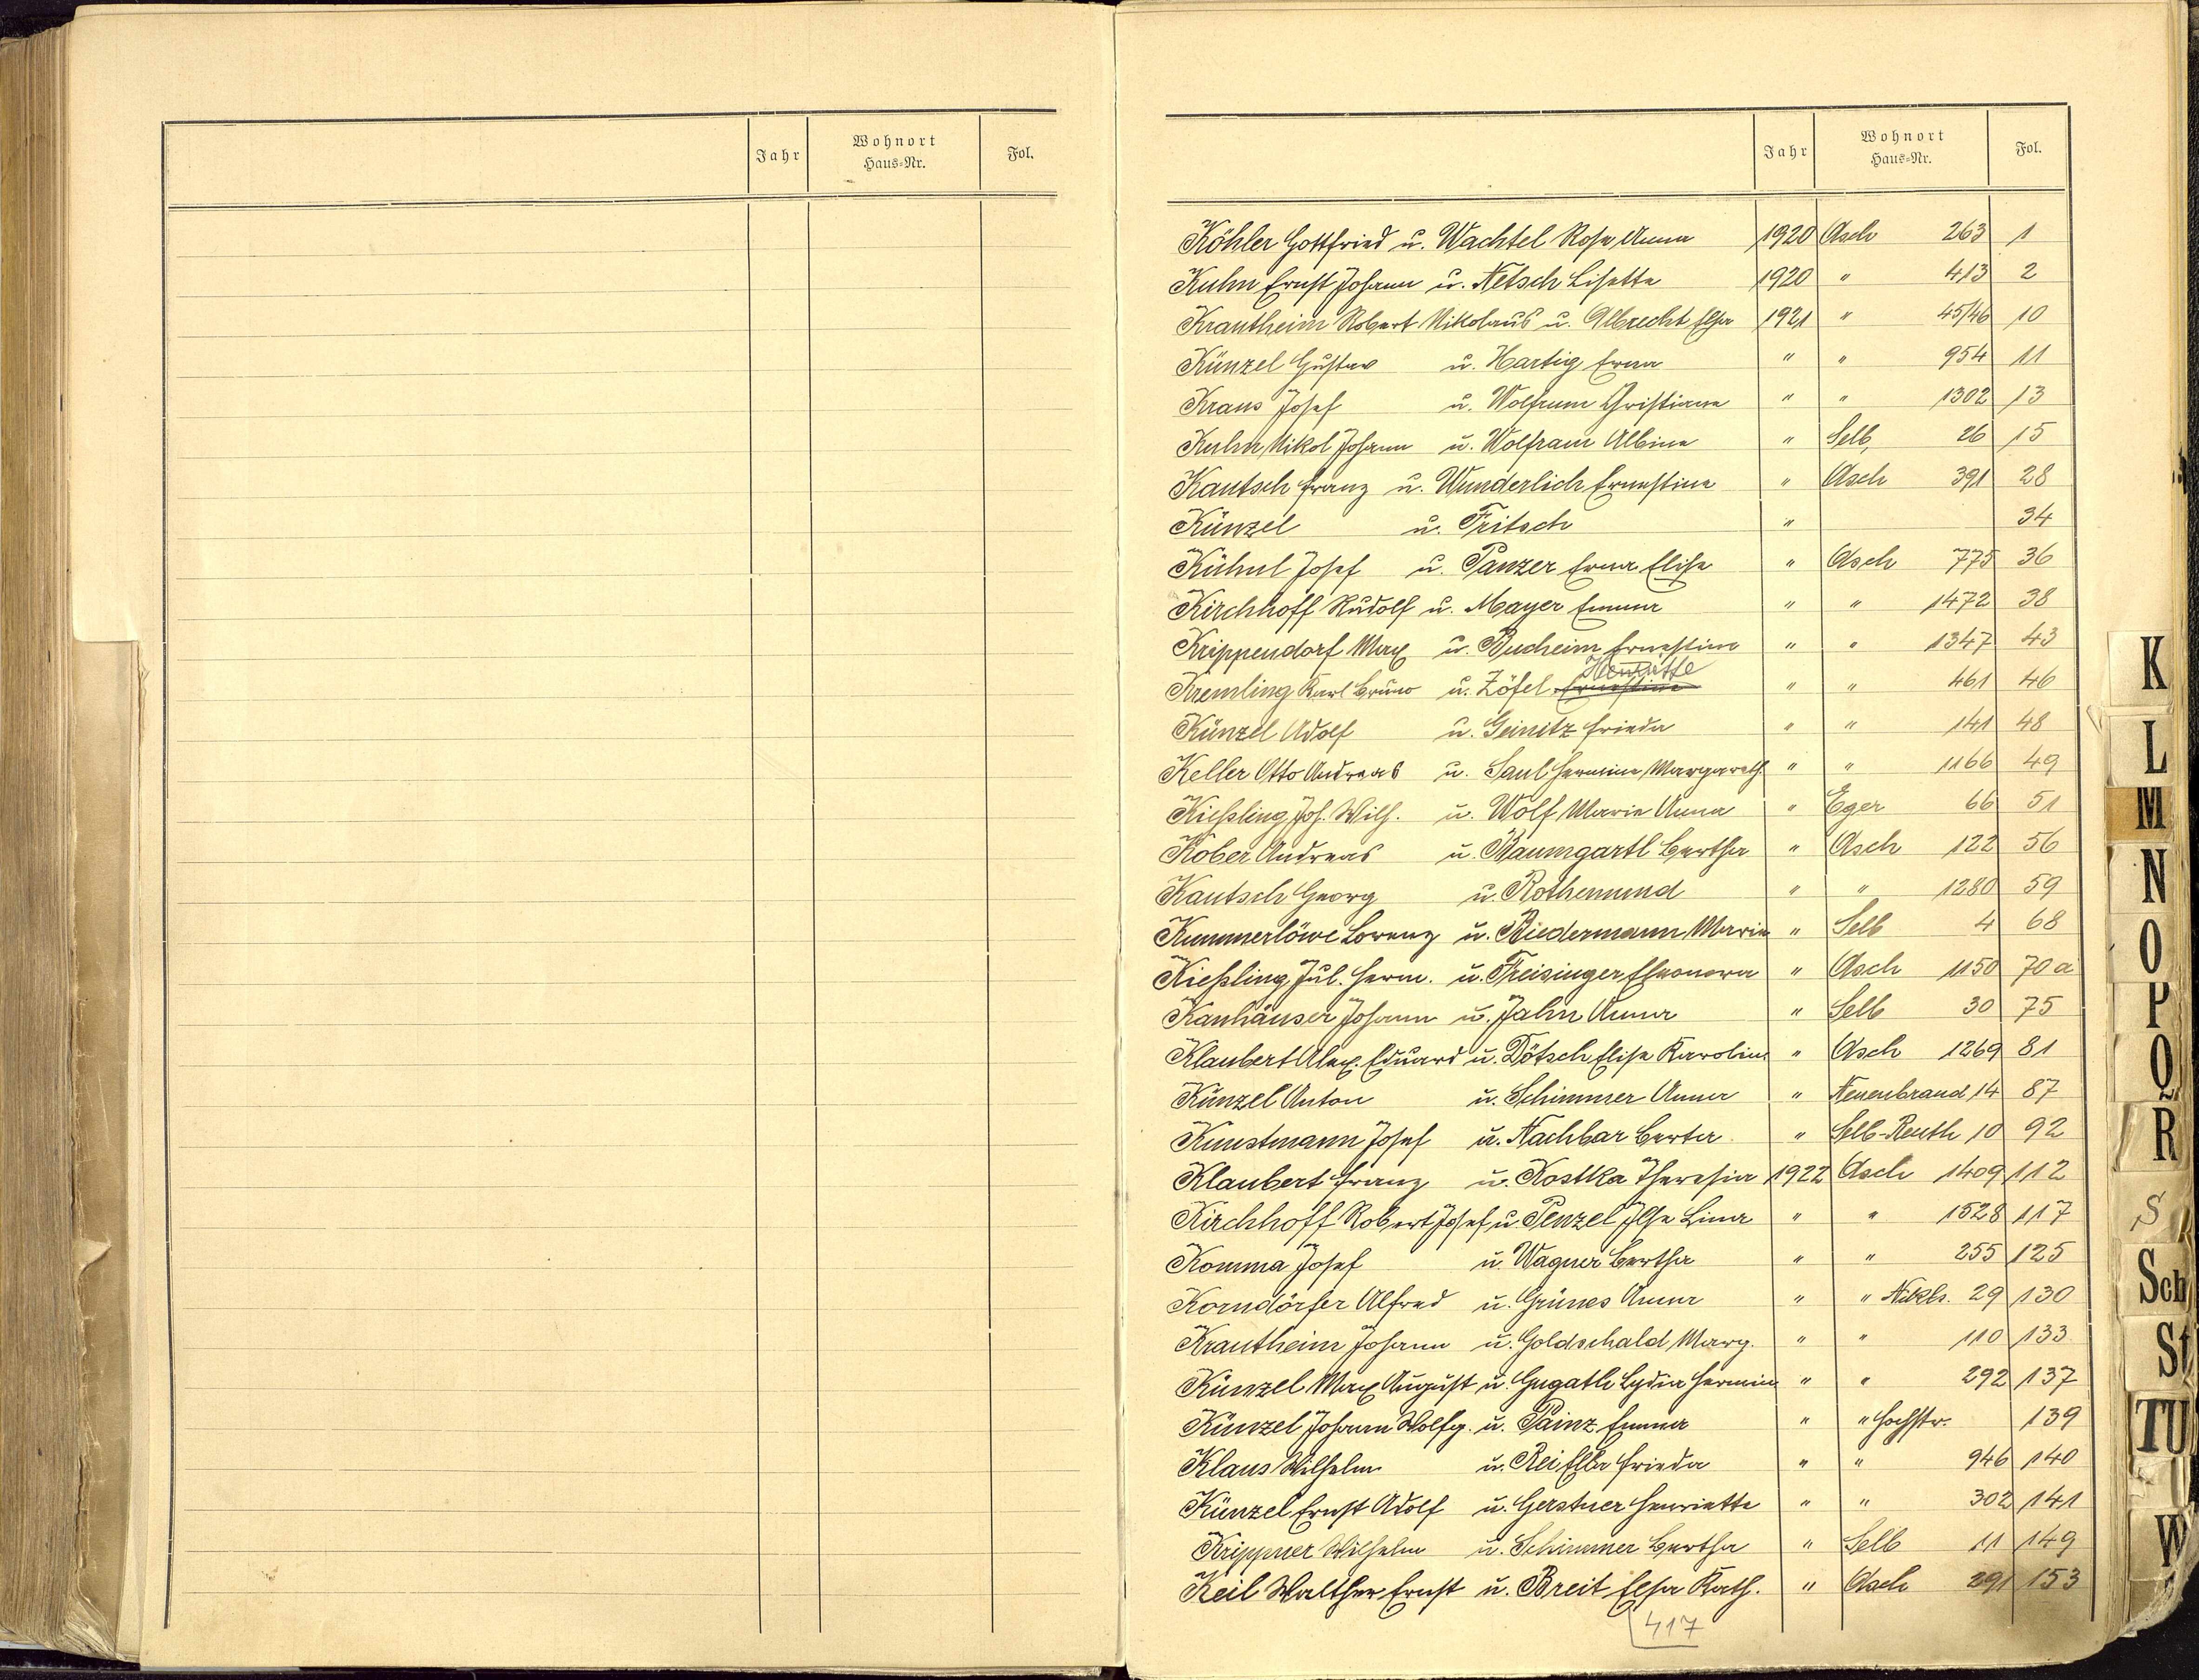 Jahr Wohnort Haus=Nr. Fol.
Jahr Wohnort Haus=Nr. Fol.
Köhler Gottfried u. Wachtel Rosa Anna 1920 Asch 263 1
Kuhn Ernst Johann u. Netsch Lisette 1920 " 413 2
Krautheim Robert Nikolaus u. Albrecht Elsa 1921 " 45/46 10
Künzel Gustav u. Hartig Erna " " 954 11
Kraus Josef u. Wolfrum Christiane " " 1302 13
Kuhn Nikol Johann u. Wolfram Albine " Selb, 26 15
Kautsch Franz u. Wunderlich Ernestine " Asch 391 28
Künzel u. Fritsch " 34
Kühnl Josef u. Panzer Erna Elise " Asch 775 36
Kirchhoff Rudolf u. Mayer Emma " " 1472 38
Krippendorf Max u. Bucheim Ernestine " " 1347 43
Henriette
Kremling Karl Bruno u. Zöfel Ernestine " " 461 46
Künzel Adolf u. Geinitz Frieda " " 141 48
Keller Otto Andreas u. Saul Hermine Margareth. " " 1166 49
Kießling Joh. Wilh. u. Wolf Marie Anna " Eger 66 51
Kober Andreas u. Baumgartl Bertha " Asch 122 56
Kautsch Georg u. Rothemund " " 1280 59
Kummerlöwe Lorenz u. Biedermann Marie " Selb 4 68
Kießling Jul. Herm. u. Freisinger Eleonora " Asch 1150 70 a
Kanhäuser Johann u. Jahn Anna " Selb 30 75
Klaubert Alex. Eduard u. Dötsch Elise Karoline " Asch 1269 81
Künzel Anton u. Schimmer Anna " Neuenbrand 14 87
Kunstmann Josef u. Nachbar Berta " Selb-Reuth 10 92
Klaubert Franz u. Kostka Theresia 1922 Asch 1409 112
Kirchhoff Robert Josef u. Penzel Ilse Lina " " 1528 117
Komma Josef u. Wagner Bertha " " 255 125
Korndörfer Alfred u. Grünes Anna " " Niklb. 29 130
Krautheim Johann u. Goldschald Marg. " " 110 133
Künzel Max August u. Gugath Lydia Hermine " " 292 137
Künzel Johann Wolfg. u. Painz Emma " " Hochstr. 139
Klaus Wilhelm u. Rei Elsa Frieda " " 946 140
Künzel Ernst Adolf u. Gerstner Henriette " " 302 141
Krippner Wilhelm u. Schimmer Bertha " Selb 11 149
Keil Walther Ernst u. Breit Elsa Kath. " Asch 291 153
417
K
L
M
N
O
P
Q
R
S
Sch
St
TU
W